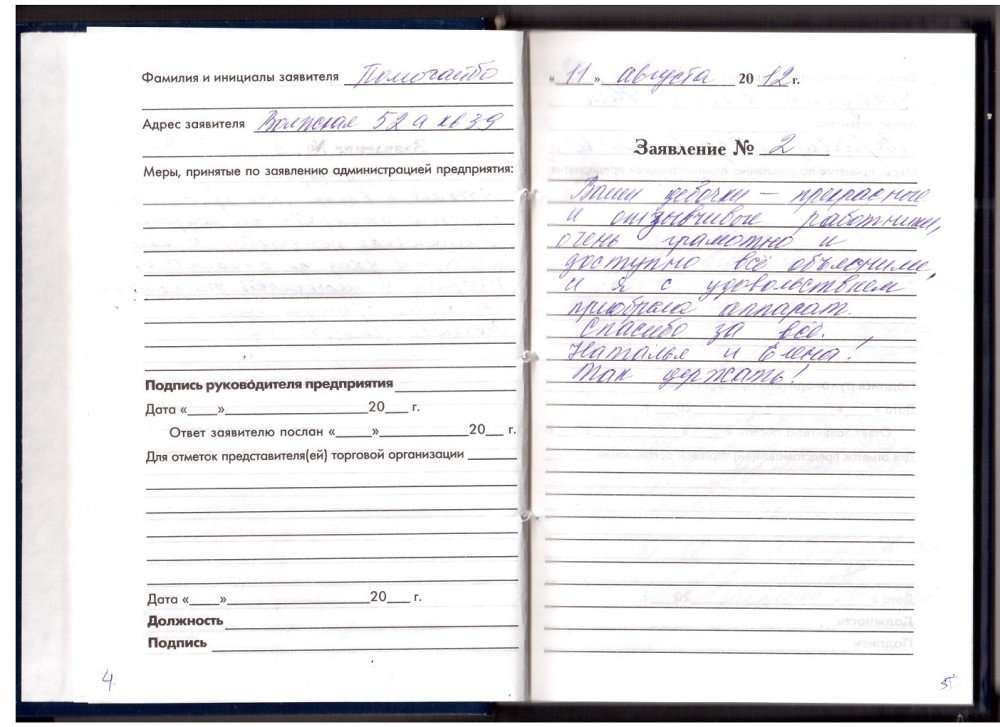 Фамилия и инициалы заявителя Помогайбо
Адрес заявителя Волжская 52а кв39
Меры, принятые по заявлению администрацией предприятия:
Подпись руководителя предприятия
Дата «____»____________________20___ г.
Ответ заявителю послан «_____»____________20___ г.
Для отметок представителя(ей) торговой организации
Дата «____»____________________20___ г.
Должность
Подпись
4
«11» августа 2012 г.
Заявление № 2
Ваши девочки – прекрасные
и отзывчивые работники,
очень грамотно и
доступно всё объяснили,
и я с удовольствием
приобрела аппарат.
Спасибо за всё.
Наталья и Елена!
Так держать!
5